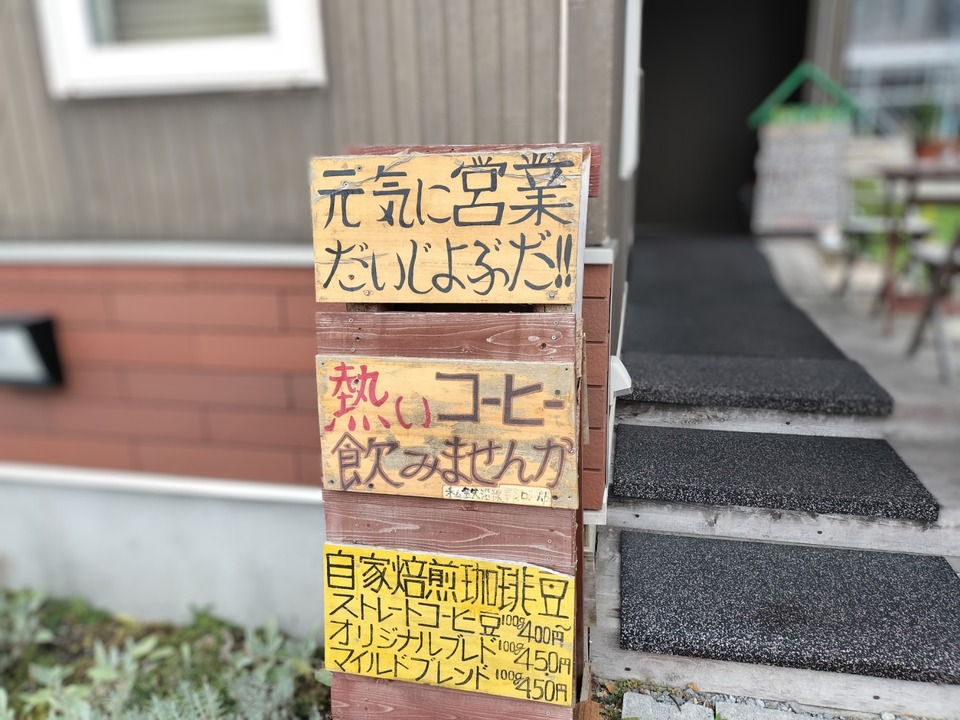 元気に営業
だいじよぶだ!!
熱いコーヒー
飲みませんか
自家焙煎珈琲豆
ストレートコーヒー豆100g400円~
オリジナルブレンド100g450円
マイルドブレンド100g450円